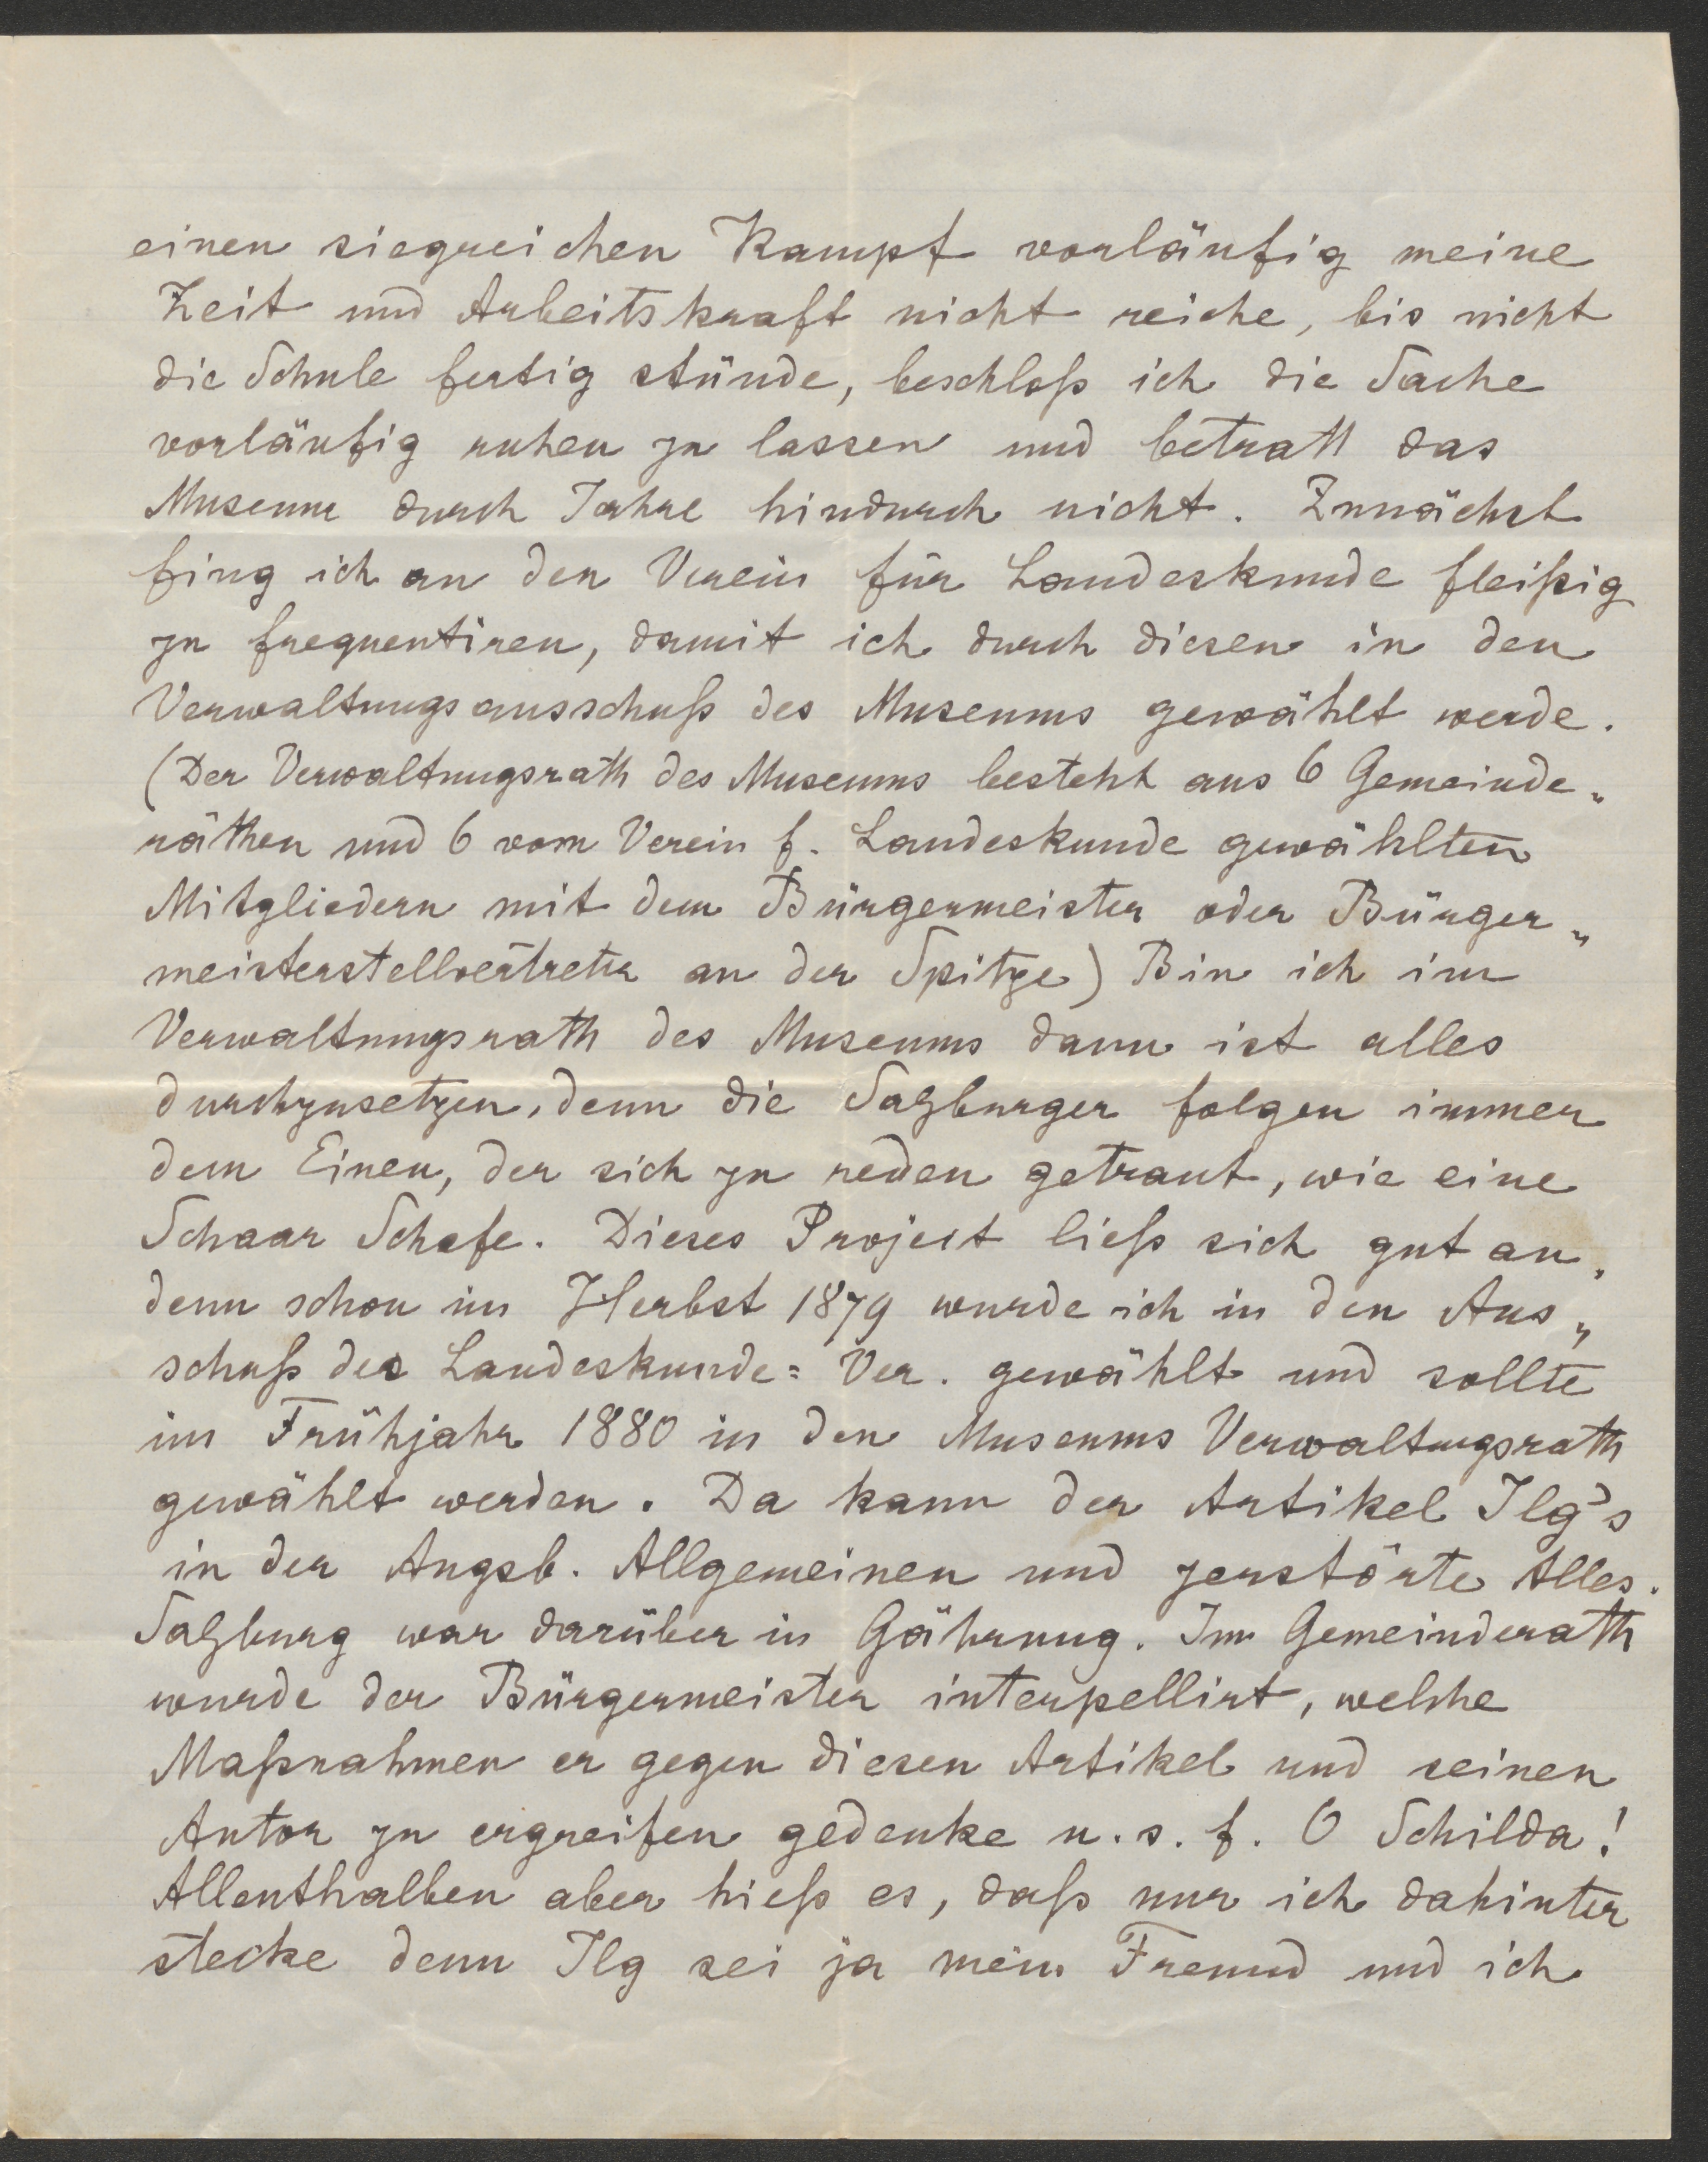 einen siegreichen Kampf vorläufig meine
Zeit und Arbeitskraft nicht reiche, bis nicht
die Schule fertig stünde, beschloß ich die Sache
vorläufig ruhen zu lassen und betratt das
Museum durch Jahre hindurch nicht. Zunächst
fing ich an den Verein für Landeskunde fleißig
zu frequentiren, damit ich durch diesen in den
Verwaltungsausschuß des Museums gewählt werde.
(Der Verwaltungsrath des Museums besteht aus 6 Gemeinde„
räthen und 6 vom Verein f. Landeskunde gewählten
Mitgliedern mit dem Bürgermeister oder Bürger„
meisterstellvertreter an der Spitze) Bin ich im
Verwaltungsrath des Museums dann ist alles
durchzusetzen, denn die Salzburger folgen immer
dem Einen, der sich zu reden getraut, wie eine
Schaar Schafe. Dieses Project ließ sich gut an,
denn schon im Herbst 1879 wurde ich in den Aus„
schuß des Landeskunde= Ver. gewählt und sollte
im Frühjahr 1880 in den Museums Verwaltungsrath
gewählt werden. Da kam der Artikel Ilg's
in der Augsb. Allgemeinen und zerstörte Alles.
Salzburg war darüber in Gährung. Im Gemeinderath
wurde der Bürgermeister interpellirt, welche
Maßnahmen er gegen diesen Artikel und seinen
Autor zu ergreifen gedenke u. s. f. O Schilda!
Allenthalben aber hieß es, daß nur ich dahinter
stecke denn Ilg sei ja mein Freund und ich